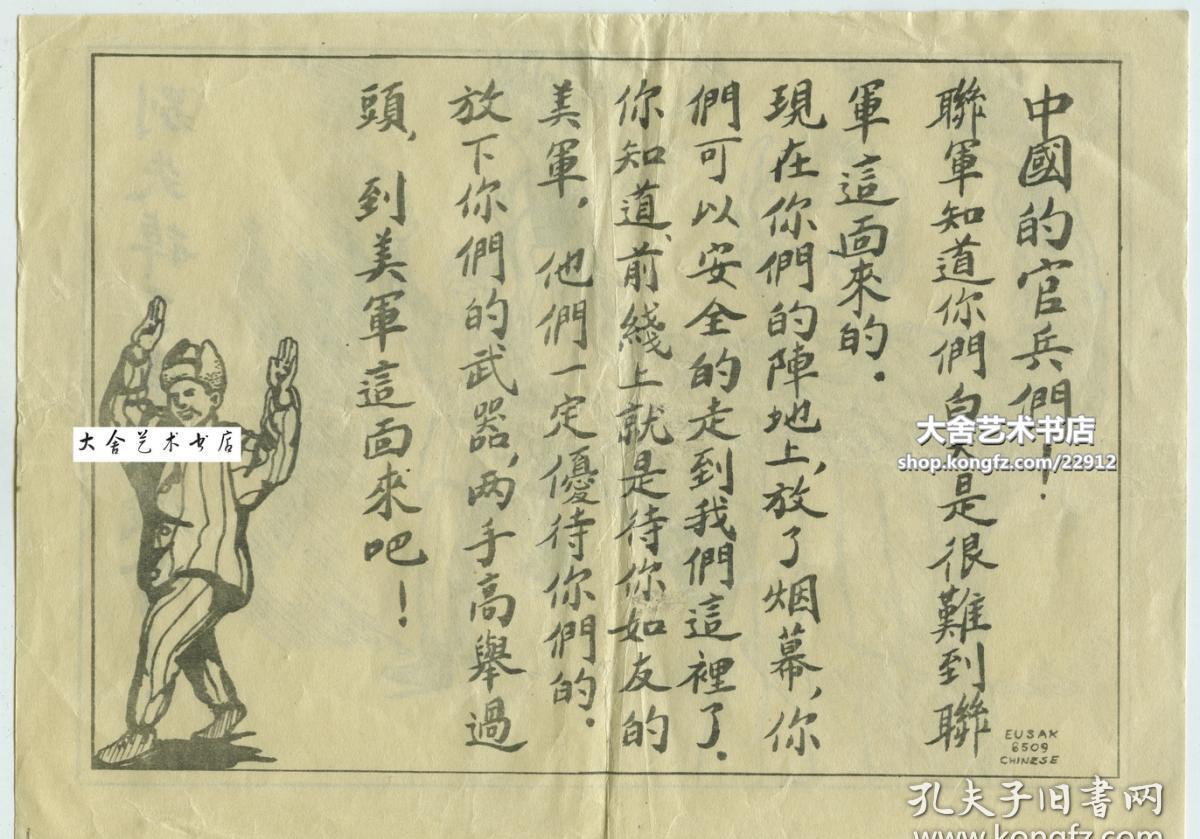 中國的官兵們!
聯軍知道你們白天是很難到聯
軍這面來的.
現在你們的陣地上,放了烟幕,你
們可以安全的走到我們這裡了.
你知道,前綫上就是待你如友的
美軍,他們一定優待你們的.
放下你們的武器,两手高舉過
頭,到美軍這面來吧!
EUSAK
6509
CHINESE
大舍艺术书店
大舍艺术书店
shop.kongfz.com/22912
孔夫子旧书网
www.kongfz.com